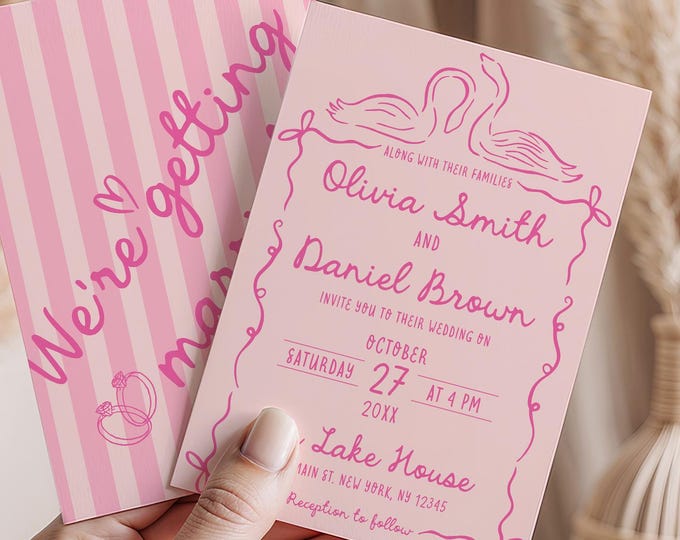 We're getting
ALONG WITH THEIR FAMILIES
Olivia Smith
AND
Daniel Brown
INVITE YOU TO THEIR WEDDING ON
OCTOBER
SATURDAY 27 AT 4 PM
20XX
Lake House
MAIN ST. NEW YORK, NY 12345
Reception to follow